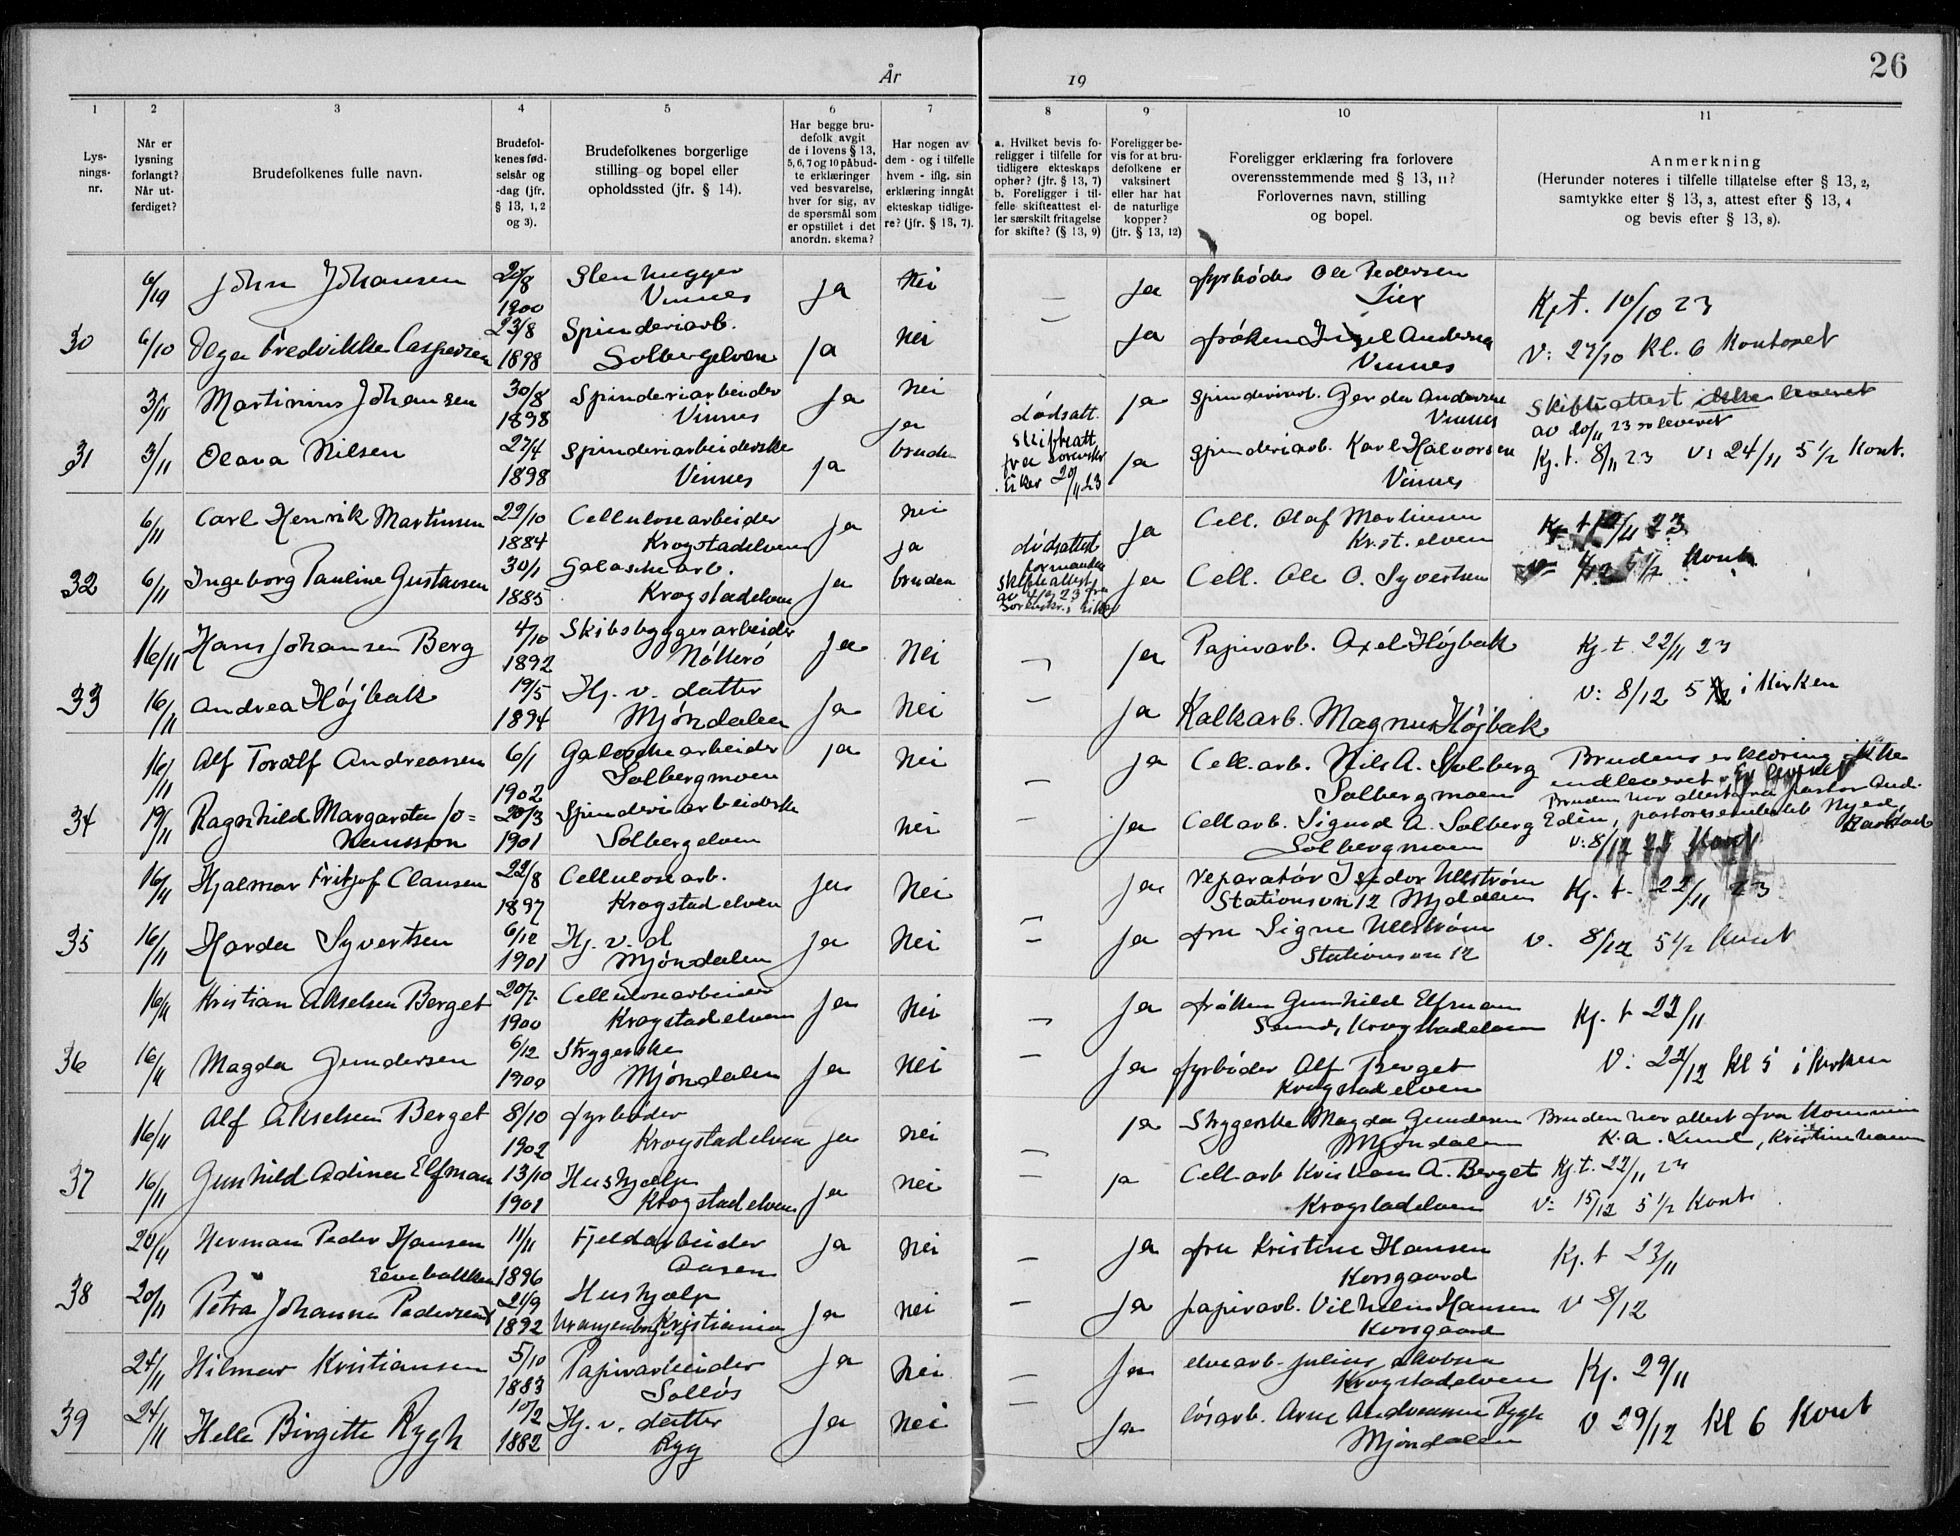 26
År
19
1 2 3 4 5 6 7 8 9 10 11
Lys-
nings-
nr.
Når er
lysning
forlangt?
Når ut-
ferdiget?
Brudefolkenes fulle navn.
Brudefol-
kenes fød-
selsår og
-dag (jfr.
§ 13, 1, 2
og 3).
Brudefolkenes borgerlige
stilling og bopel eller
opholdssted (jfr. § 14).
Har begge bru-
defolk avgit
de i lovens § 13,
5, 6, 7 og 10 påbud-
te erklæringer
ved besvarelse,
hver for sig, av
de spørsmål som
er opstillet i det
anordn. skema?
Har nogen av
dem - og i tilfelle
hvem - iflg. sin
erklæring inngått
ekteskap tidlige-
re? (jfr. § 13, 7).
a. Hvilket bevis fo-
religger i tilfelle for
tidligere ekteskaps
ophør? (jfr. § 13, 7)
b. Foreligger i til-
felle skifteattest el-
ler særskilt fritagelse
for skifte? (§ 13, 9)
Foreligger be-
vis for at bru-
defolkene er
vaksinert
eller har hat
de naturlige
kopper?
(jfr. § 13, 12)
Foreligger erklæring fra forlovere
overensstemmende med § 13, 11?
Forlovernes navn, stilling
og bopel.
Anmerkning
(Herunder noteres i tilfelle tillatelse efter § 13, 2,
samtykke efter § 13, 3, attest efter § 13, 4
og bevis efter § 13, 8).
6/10 John Johansen 20/8 1900 Stenhugger Vinnes ja Nei — ja fyrbøder Ole Pedersen Kj t. 10/10 23
30 6/10 Olga Fredrikke Caspersen 23/8 1898 Spinderiarb. Solbergelven ja Nei — ja frøken Andersen Vinnes V: 27/10 Kl. 6 Kontoret
3/11 Martinius Johansen 30/8 1898 Spinderiarbeider Vinnes ja Nei ja spinderiarb. Gerda Andersen Vinnes Skifteattest ikke leveret
av 20/11 23 leveret
31 3/11 Olava Nilsen 27/4 1898 Spinderiarbeiderske Vinnes ja ja bruden dødsatt. skifteatt. fra sorenskr. Eiker 20/11 23 ja spinderiarb. Karl Halvorsen Vinnes Kj. t. 8/11 23 V: 24/11 5 1/2 Kont.
6/11 Carl Henrik Martinsen 29/10 1884 Cellulosearbeider Krogstadelven ja Nei ja Cell. Olaf Martinsen Kr.st. elven Kj t 23
32 6/11 Ingeborg Pauline Gustavsen 30/1 1885 Galoschearb. Krogstadelven ja ja bruden dødsattest formanden skifteattest av 23 fra Sorenskr. i Eiker ja Cell. Ole O. Syvertsen V: 5 1/2 Kont
16/11 Hans Johansen Berg 4/10 1892 Skibsbyggerarbeider Nøtterø ja Nei — ja Papirarb. Axel Højbak Kj. t. 22/11 23
33 16/11 Andrea Højbak 19/5 1894 Hj. v. datter Mjøndalen ja Nei — ja Kalkarb. Magnus Højbak V: 8/12 5 1/2 i Kirken
16/11 Alf Toralf Andreassen 6/1 1902 Galoschearbeider Solbergmoen ja Nei — ja Cell.arb. Nils A. Solberg Solbergmoen Brudens erklæring ikke
indleveret
34 19/11 Ragnhild Margareta Jo=
hansson 20/3 1901 Spinderiarbeiderske Solbergelven Nei — ja Cellarb. Sigurd A. Solberg Solbergmoen Bruden har attest fra pastor
Edin, Nyed, Karlstad
V: 8/12
16/11 Hjalmar Fritjof Clausen 22/8 1897 Cellulosearb. Krogstadelven ja Nei — ja reparatør Isidor Ullstrøm Stationsvn 12 Mjøndalen Kj. t. 22/11 23
35 16/11 Harda Syvertsen 6/12 1901 Hj. v. d Mjøndalen ja Nei — ja fru Signe Ullstrøm Stationsvn 12 V. 8/12 5 1/2 Kont
16/11 Kristian Akselsen Berget 20/7 1900 Cellulosearbeider Krogstadelven ja Nei — ja frøken Gunhild Elfman Sund, Krogstadelven Kj. t 22/11
36 16/11 Magda Gundersen 6/12 1900 Strygerske Mjøndalen ja Nei — ja fyrbøder Alf Berget Krogstadelven V: 22/12 Kl 5 i Kirken
16/11 Alf Akselsen Berget 8/10 1902 fyrbøder Krogstadelven ja Nei — ja Strygerske Magda Gundersen Mjøndalen Bruden har attest fra Komminister
K. A. Lund, Kristinehamn
37 16/11 Gunhild Adina Elfman 13/10 1901 Hushjælp Krogstadelven ja Nei — ja Cellarb Kristian A. Berget Krogstadelven Kj. t. 22/11 23
V: 15/12 5 1/2 Kont
20/11 Herman Peder Hansen
Elvebakken 11/11 1896 Fjeldarbeider Aasen ja Nei — ja fru Kristine Hansen Korsgaard Kj. t 23/11
38 20/11 Petra Johanne Pedersen 21/9 1892 Hushjælp Uranienborg Kristiania ja Nei — ja papirarb. Vilhelm Hansen Korsgaard V 8/12
24/11 Hilmar Kristiansen 5/10 1883 Papirarbeider Solløs ja Nei — ja elvearb. Julius Jakobsen Krogstadelven Kj. 29/11
39 24/11 Helle Birgitte Rygh 10/2 1882 Hj. v. datter Ryg ja Nei — ja løsarb. Arne Andreassen Rygh Mjøndalen V 29/12 Kl 6 Kont